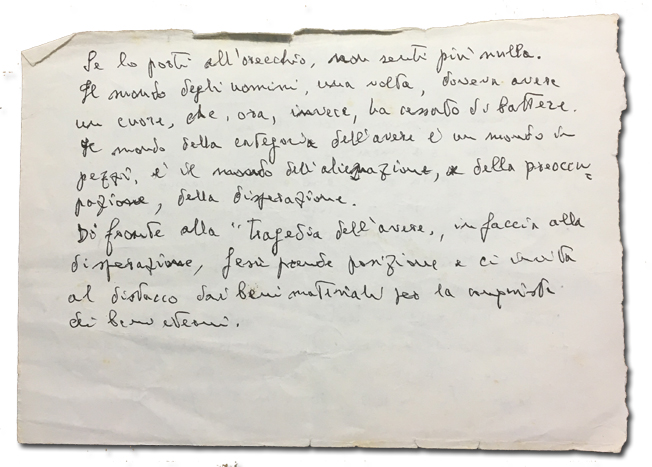 Se lo porti all'orecchio, non senti più nulla.
Il mondo degli uomini, una volta, doveva avere
un cuore, che, ora, invece, ha cessato di battere.
Il mondo della categoria dell'avere è un mondo in
pezzi, è il mondo dell'alienazione, e della preoccu=
pazione, della disperazione.
Di fronte alla "tragedia dell'avere", in faccia alla
disperazione, Gesù prende posizione e ci invita
al distacco dai beni materiali per la conquista
dei beni eterni.